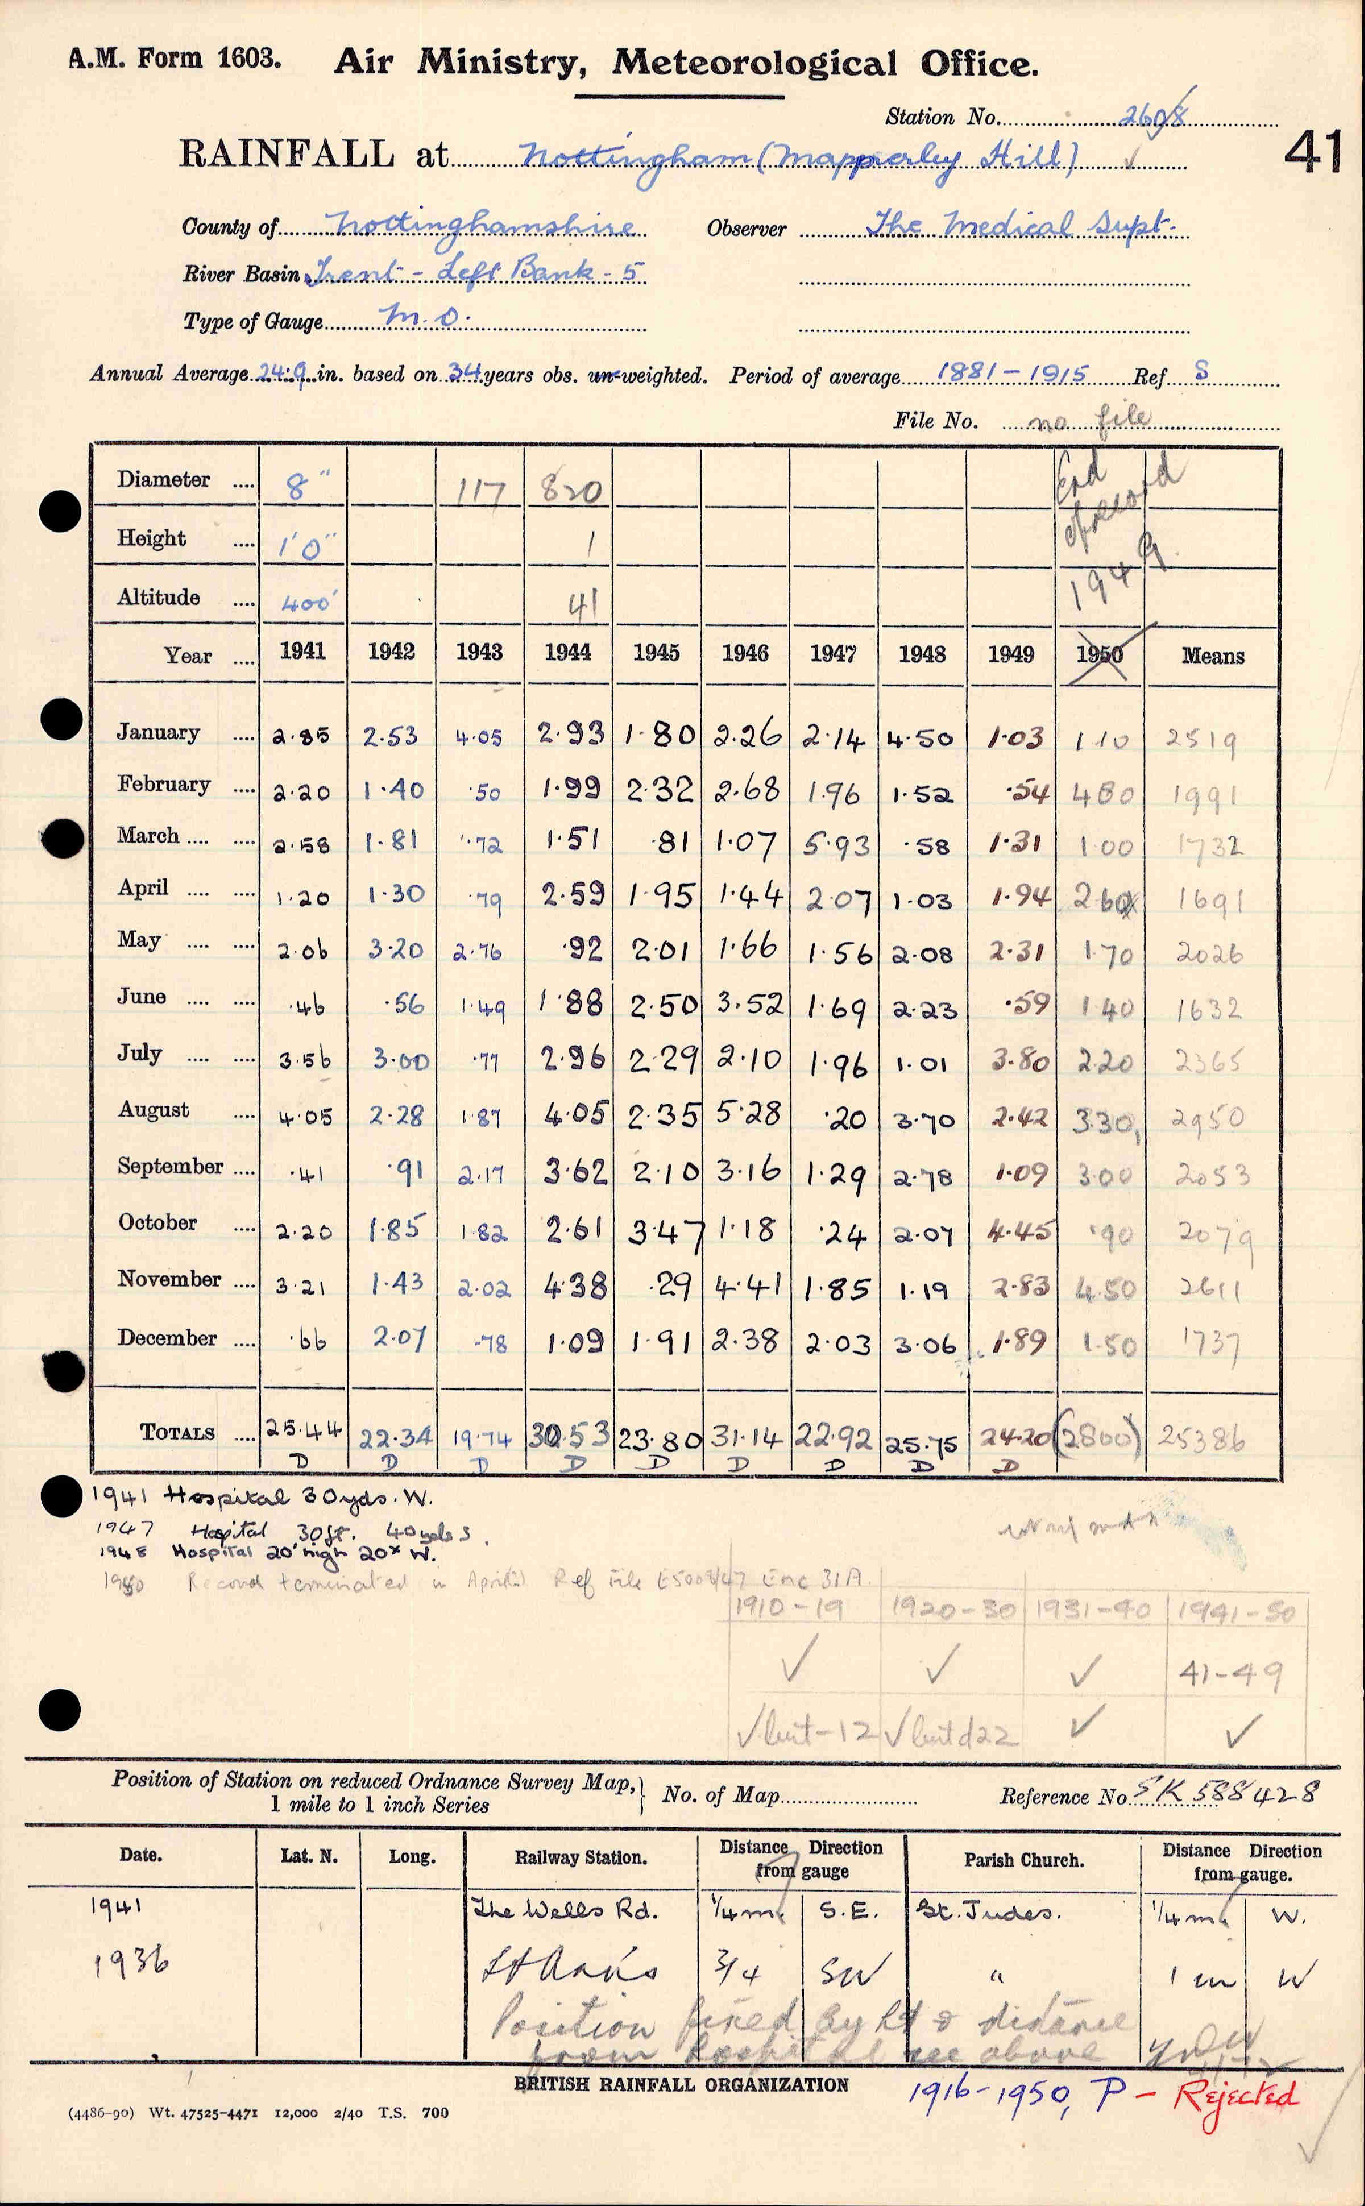 A.M. Form 1603. Air Ministry, Meteorological Office.
Station No. 2608
41
RAINFALL at Nottingham (Mapperley Hill)
County of Nottinghamshire Observer The Medical Supt.
River Basin Trent - Left Bank - 5
Type of Gauge M.O.
Annual Average 24.9 in. based on 34 years obs. un-weighted. Period of average 1881-1915 Ref S
File No. no file
Diameter .... 8" 117 820 End
Height .... 1'0" 1 of record
Altitude .... 400' 41 1949
Year .... 1941 1942 1943 1944 1945 1946 1947 1948 1949 1950 Means
January .... 2.85 2.53 4.05 2.93 1.80 2.26 2.14 4.50 1.03 1.10 2519
February .... 2.20 1.40 .50 1.99 2.32 2.68 1.96 1.52 .54 480 1991
March .... .... 2.58 1.81 .72 1.51 .81 1.07 5.93 .58 1.31 1.00 1732
April .... .... 1.20 1.30 .79 2.59 1.95 1.44 2.07 1.03 1.94 260 1691
May .... .... 2.06 3.20 2.76 .92 2.01 1.66 1.56 2.08 2.31 1.70 2026
June .... .... .46 .56 1.49 1.88 2.50 3.52 1.69 2.23 .59 1 40 1632
July .... .... 3.56 3.00 .77 2.96 2.29 2.10 1.96 1.01 3.80 2.20 2365
August .... 4.05 2.28 1.87 4.05 2.35 5.28 .20 3.70 2.42 3.30 2950
September .... .41 .91 2.17 3.62 2.10 3.16 1.29 2.78 1.09 3.00 2053
October .... 2.20 1.85 1.82 2.61 3.47 1.18 .24 2.07 4.45 .90 2079
November .... 3.21 1.43 2.02 4.38 .29 4.41 1.85 1.19 2.83 4.50 2611
December .... .66 2.07 .78 1.09 1.91 2.38 2.03 3.06 1.89 1.50 1737
TOTALS .... 25.44 22.34 19.74 30.53 23.80 31.14 22.92 25.75 24.20 (2800) 25386
D D D D D D D D D
1941 Hospital 30yds. W.
1947 Hospital 30ft. 40yds S.
1948 Hospital 20' high 20x W.
1950 Record terminated in April Ref File E5008/47 Enc 31A
1910-19 1920-30 1931-40 1941-50
✓ ✓ ✓ 41-49
✓ but -12 ✓ but d22 ✓ ✓
Position of Station on reduced Ordnance Survey Map, } No. of Map Reference No. SK 588428
1 mile to 1 inch Series
Date. Lat. N. Long. Railway Station. Distance Direction from gauge Parish Church. Distance Direction from gauge.
1941 The Wells Rd. 1/4 m. S.E. St. Judes. 1/4 m. W.
1936 St Ann's 3/4 SW " 1 m W
Position fixed by ht & distance
from hospital see above
BRITISH RAINFALL ORGANIZATION
1916-1950, P - Rejected
(4486-90) Wt. 47525-4471 12,000 2/40 T.S. 700